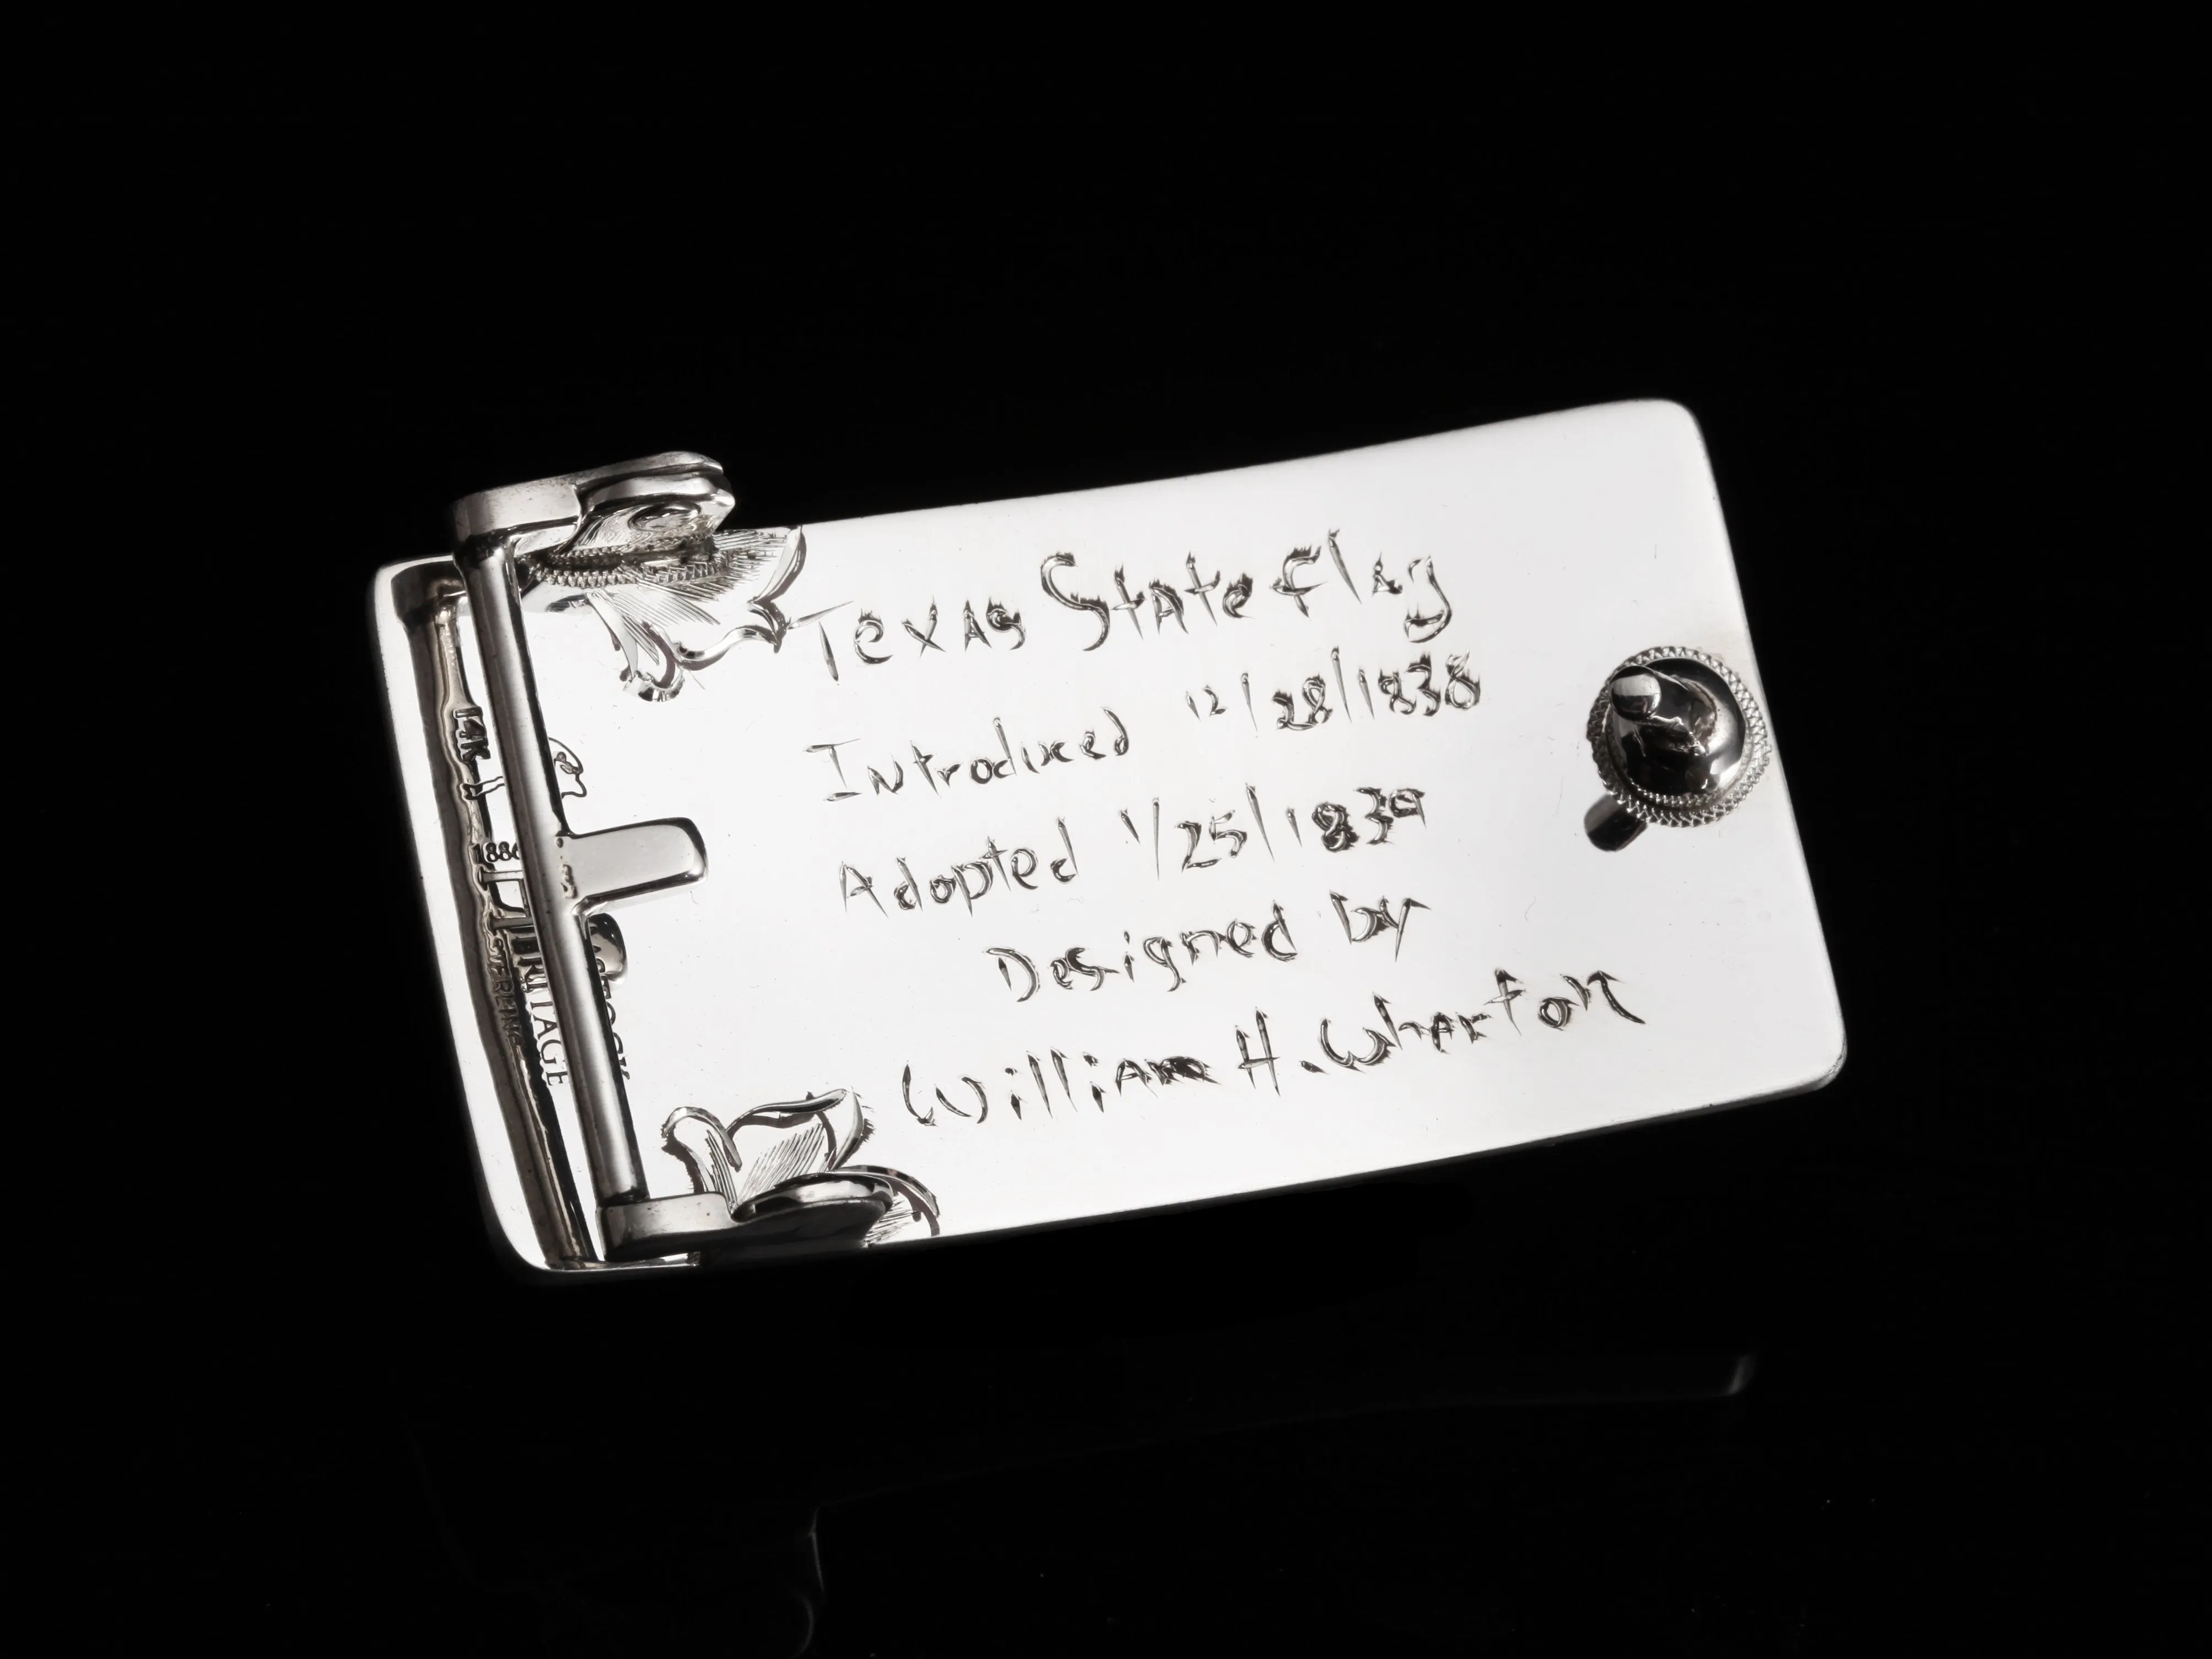 Texas State Flag
Introduced 12/28/1838
Adopted 1/25/1839
Designed by
William H. Wharton
14K
STERLING